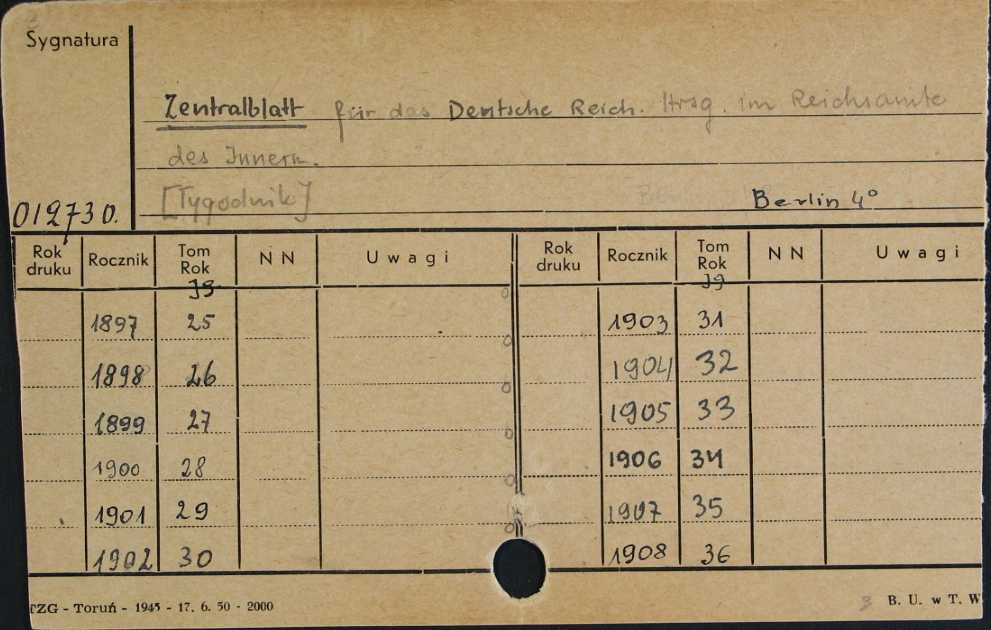 Sygnatura
Zentralblatt für das Deutsche Reich. Hrsg. im Reichsamte
des Innern.
[Tygodnik] Berlin 4°
012730.
Rok druku Rocznik Tom Rok N N Uwagi Rok druku Rocznik Tom Rok N N Uwagi
Jg Jg
1897 25 1903 31
1898 26 1904 32
1899 27 1905 33
1900 28 1906 34
1901 29 1907 35
1902 30 1908 36
TZG - Toruń - 1945 - 17. 6. 50 - 2000 3 B. U. w T. W